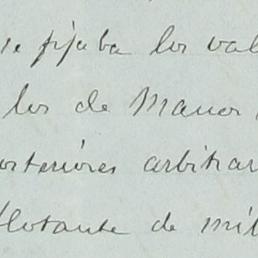 se fijaba los val
los de Manos
osteriores arbitrar
flotante de mil